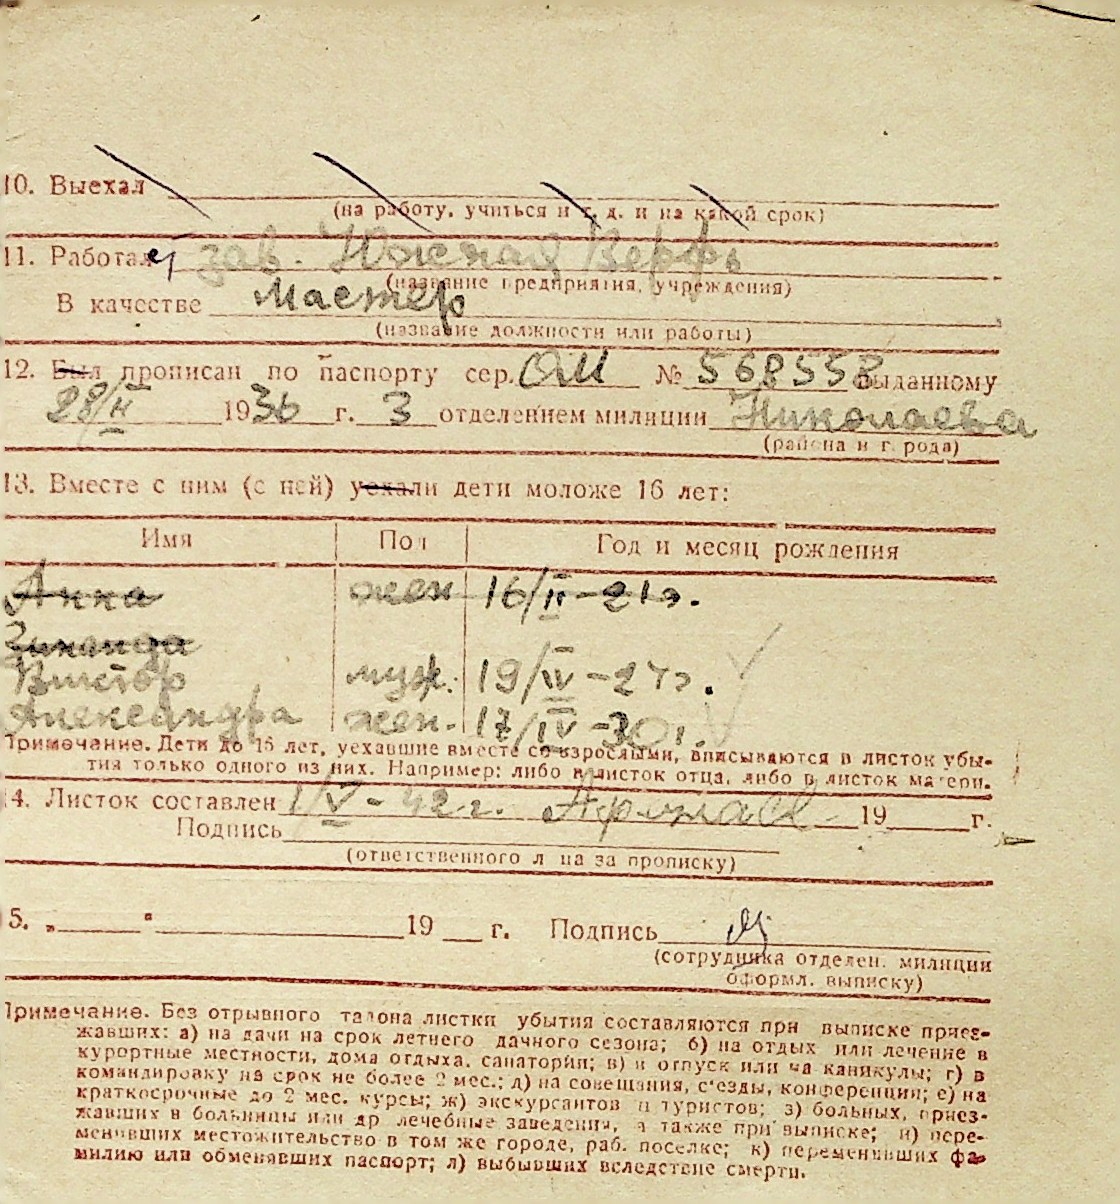 10. Выехал
(на работу, учиться и т. д. и на какой срок)
11. Работает зав. Южная Верфь
(название предприятия, учреждения)
В качестве Мастер
(название должности или работы)
12. Был прописан по паспорту сер. ОМ № 568558 выданному
28/II 1936 г. 3 отделением милиции Николаева
(района и города)
13. Вместе с ним (с ней) уехали дети моложе 16 лет:
Имя Пол Год и месяц рождения
Анна жен 16/II-21г.
Зинаида
Виктор муж. 19/IV-27г.
Александра жен. 17/IV-30г.
Примечание. Дети до 16 лет, уехавшие вместе со взрослыми, вписываются в листок убы-
тия только одного из них. Например: либо в листок отца, либо в листок матери.
14. Листок составлен 1/V-42г. 19 г.
Подпись
(ответственного лица за прописку)
15. „ “ 19 г. Подпись
(сотрудника отделен. милиции
оформл. выписку)
Примечание. Без отрывного талона листки убытия составляются при выписке приез-
жавших: а) на дачи на срок летнего дачного сезона; б) на отдых или лечение в
курортные местности, дома отдыха, санатории; в) в отпуск или на каникулы; г) в
командировку на срок не более 2 мес.; д) на совещания, съезды, конференции; е) на
краткосрочные до 2 мес. курсы; ж) экскурсантов и туристов; з) больных, приез-
жавших в больницы или др лечебные заведения, а также при выписке; и) пере-
менивших местожительство в том же городе, раб. поселке; к) переменивших фа-
милию или обменявших паспорт; л) выбывших вследствие смерти.